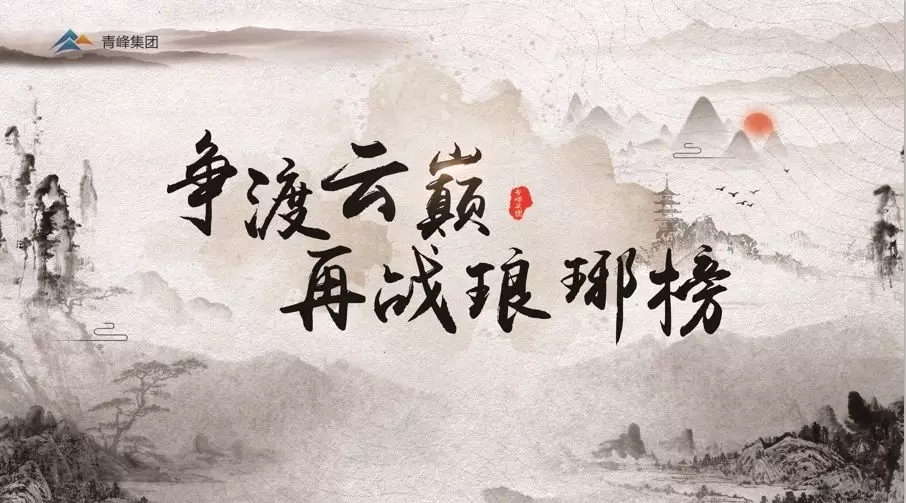 青峰集团
争渡云巅
青峰集团
再战琅琊榜